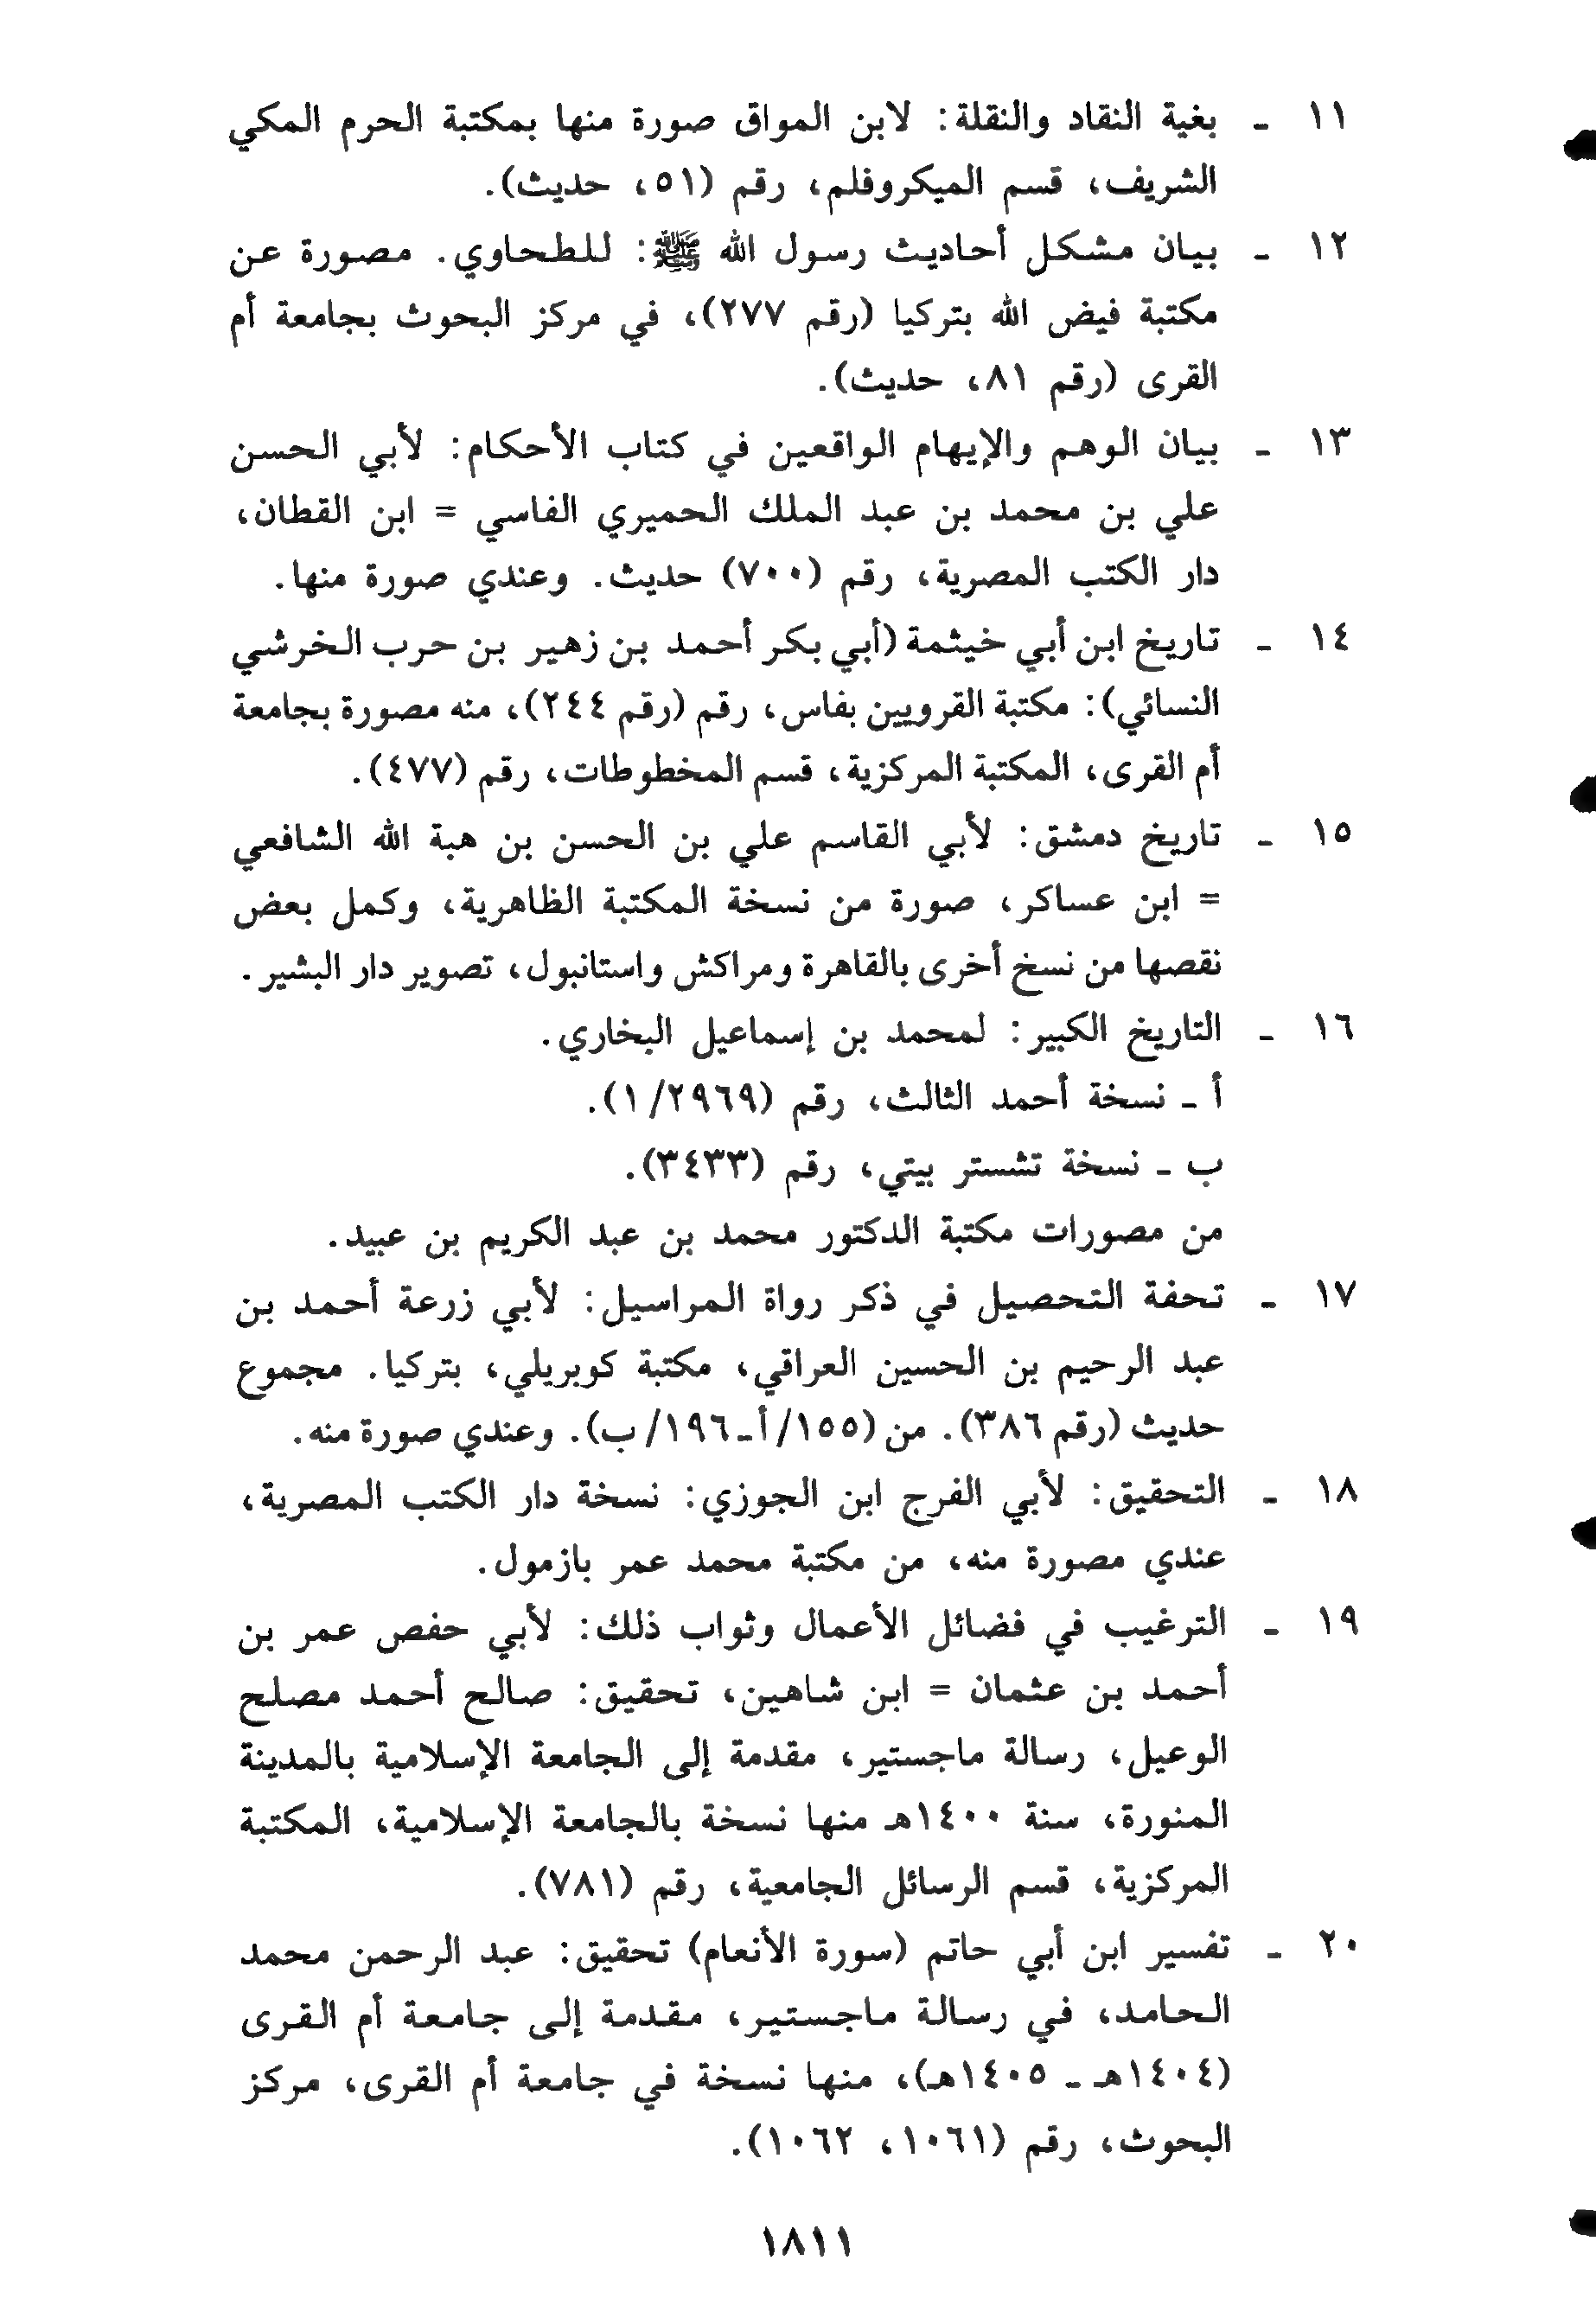 ١١ ـ بغية النقاد والنقلة: لابن المواق صورة منها بمكتبة الحرم المكي
الشريف، قسم الميكروفلم، رقم (٥١، حديث).
١٢ ـ بيان مشكل أحاديث رسول الله ﷺ: للطحاوي. مصورة عن
مكتبة فيض الله بتركيا (رقم ٢٧٧)، في مركز البحوث بجامعة أم
القرى (رقم ٨١، حديث).
١٣ ـ بيان الوهم والإيهام الواقعين في كتاب الأحكام: لأبي الحسن
علي بن محمد بن عبد الملك الحميري الفاسي = ابن القطان،
دار الكتب المصرية، رقم (٧٠٠) حديث. وعندي صورة منها.
١٤ ـ تاريخ ابن أبي خيثمة (أبي بكر أحمد بن زهير بن حرب الخرشي
النسائي): مكتبة القرويين بفاس، رقم (رقم ٢٤٤)، منه مصورة بجامعة
أم القرى، المكتبة المركزية، قسم المخطوطات، رقم (٤٧٧).
١٥ ـ تاريخ دمشق: لأبي القاسم علي بن الحسن بن هبة الله الشافعي
= ابن عساكر، صورة من نسخة المكتبة الظاهرية، وكمل بعض
نقصها من نسخ أخرى بالقاهرة ومراكش واستانبول، تصوير دار البشير.
١٦ ـ التاريخ الكبير: لمحمد بن إسماعيل البخاري.
أ ـ نسخة أحمد الثالث، رقم (١/٢٩٦٩).
ب ـ نسخة تشستر بيتي، رقم (٣٤٣٣).
من مصورات مكتبة الدكتور محمد بن عبد الكريم بن عبيد.
١٧ ـ تحفة التحصيل في ذكر رواة المراسيل: لأبي زرعة أحمد بن
عبد الرحيم بن الحسين العراقي، مكتبة كوبريلي، بتركيا. مجموع
حديث (رقم ٣٨٦). من (١٥٥/أ ـ ١٩٦/ب). وعندي صورة منه.
١٨ ـ التحقيق: لأبي الفرج ابن الجوزي: نسخة دار الكتب المصرية،
عندي مصورة منه، من مكتبة محمد عمر بازمول.
١٩ ـ الترغيب في فضائل الأعمال وثواب ذلك: لأبي حفص عمر بن
أحمد بن عثمان = ابن شاهين، تحقيق: صالح أحمد مصلح
الوعيل، رسالة ماجستير، مقدمة إلى الجامعة الإسلامية بالمدينة
المنورة، سنة ١٤٠٠هـ منها نسخة بالجامعة الإسلامية، المكتبة
المركزية، قسم الرسائل الجامعية، رقم (٧٨١).
٢٠ ـ تفسير ابن أبي حاتم (سورة الأنعام) تحقيق: عبد الرحمن محمد
الحامد، في رسالة ماجستير، مقدمة إلى جامعة أم القرى
(١٤٠٤هـ ـ ١٤٠٥هـ)، منها نسخة في جامعة أم القرى، مركز
البحوث، رقم (١٠٦١، ١٠٦٢).
١٨١١